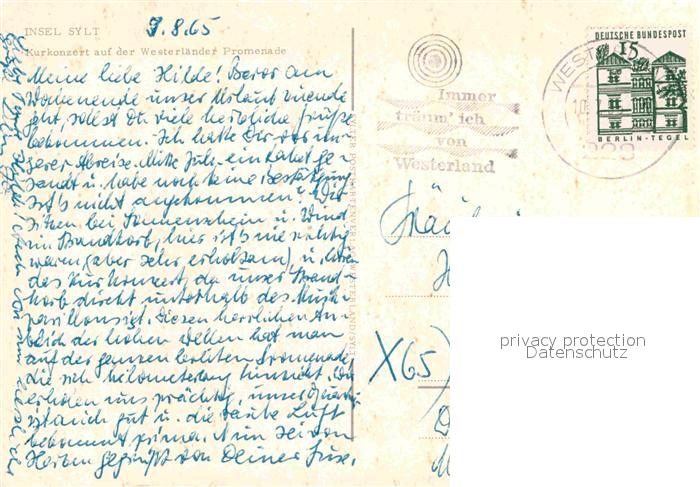 INSEL SYLT
7.8.65
Kurkonzert auf der Westerländer Promenade
Meine liebe Hilde! Bevor am
Wochenende unser Urlaub zuende
geht, sollst Du viele herzliche Grüße
bekommen. Ich hatte Dir vor un-
serer Abreise Mitte Juli ein Paket ge-
sandt u. habe noch keine Bestätigung.
Ist's nicht angekommen? Wir
sitzen bei Sonnenschein u. Wind
im Strandkorb, hier ist's nie richtig
warm (aber sehr erholsam), u. hören
das Kurkonzert, da unser Strand-
korb direkt unterhalb des Musik-
pavillons ist. Diesen herrlichen An-
blick der hohen Wellen hat man
auf der ganzen breiten Promenade,
die sich kilometerlang hinzieht. Wir
erholen uns prächtig, unser Quartier
ist auch gut u. die raube Luft
bekommt prima. Nun sei von
Herzen gegrüßt von Deiner
Immer
träum' ich
von
Westerland
DEUTSCHE BUNDESPOST
15
BERLIN-TEGEL
WEST
10.
228
X65)
privacy protection
Datenschutz